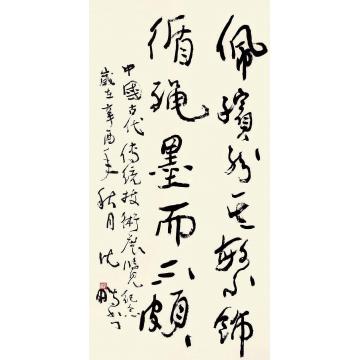 佩繽紛其繁飾
循繩墨而不頗
中國古代傳統技術展覽紀念
歲在辛酉年秋月沈鵬